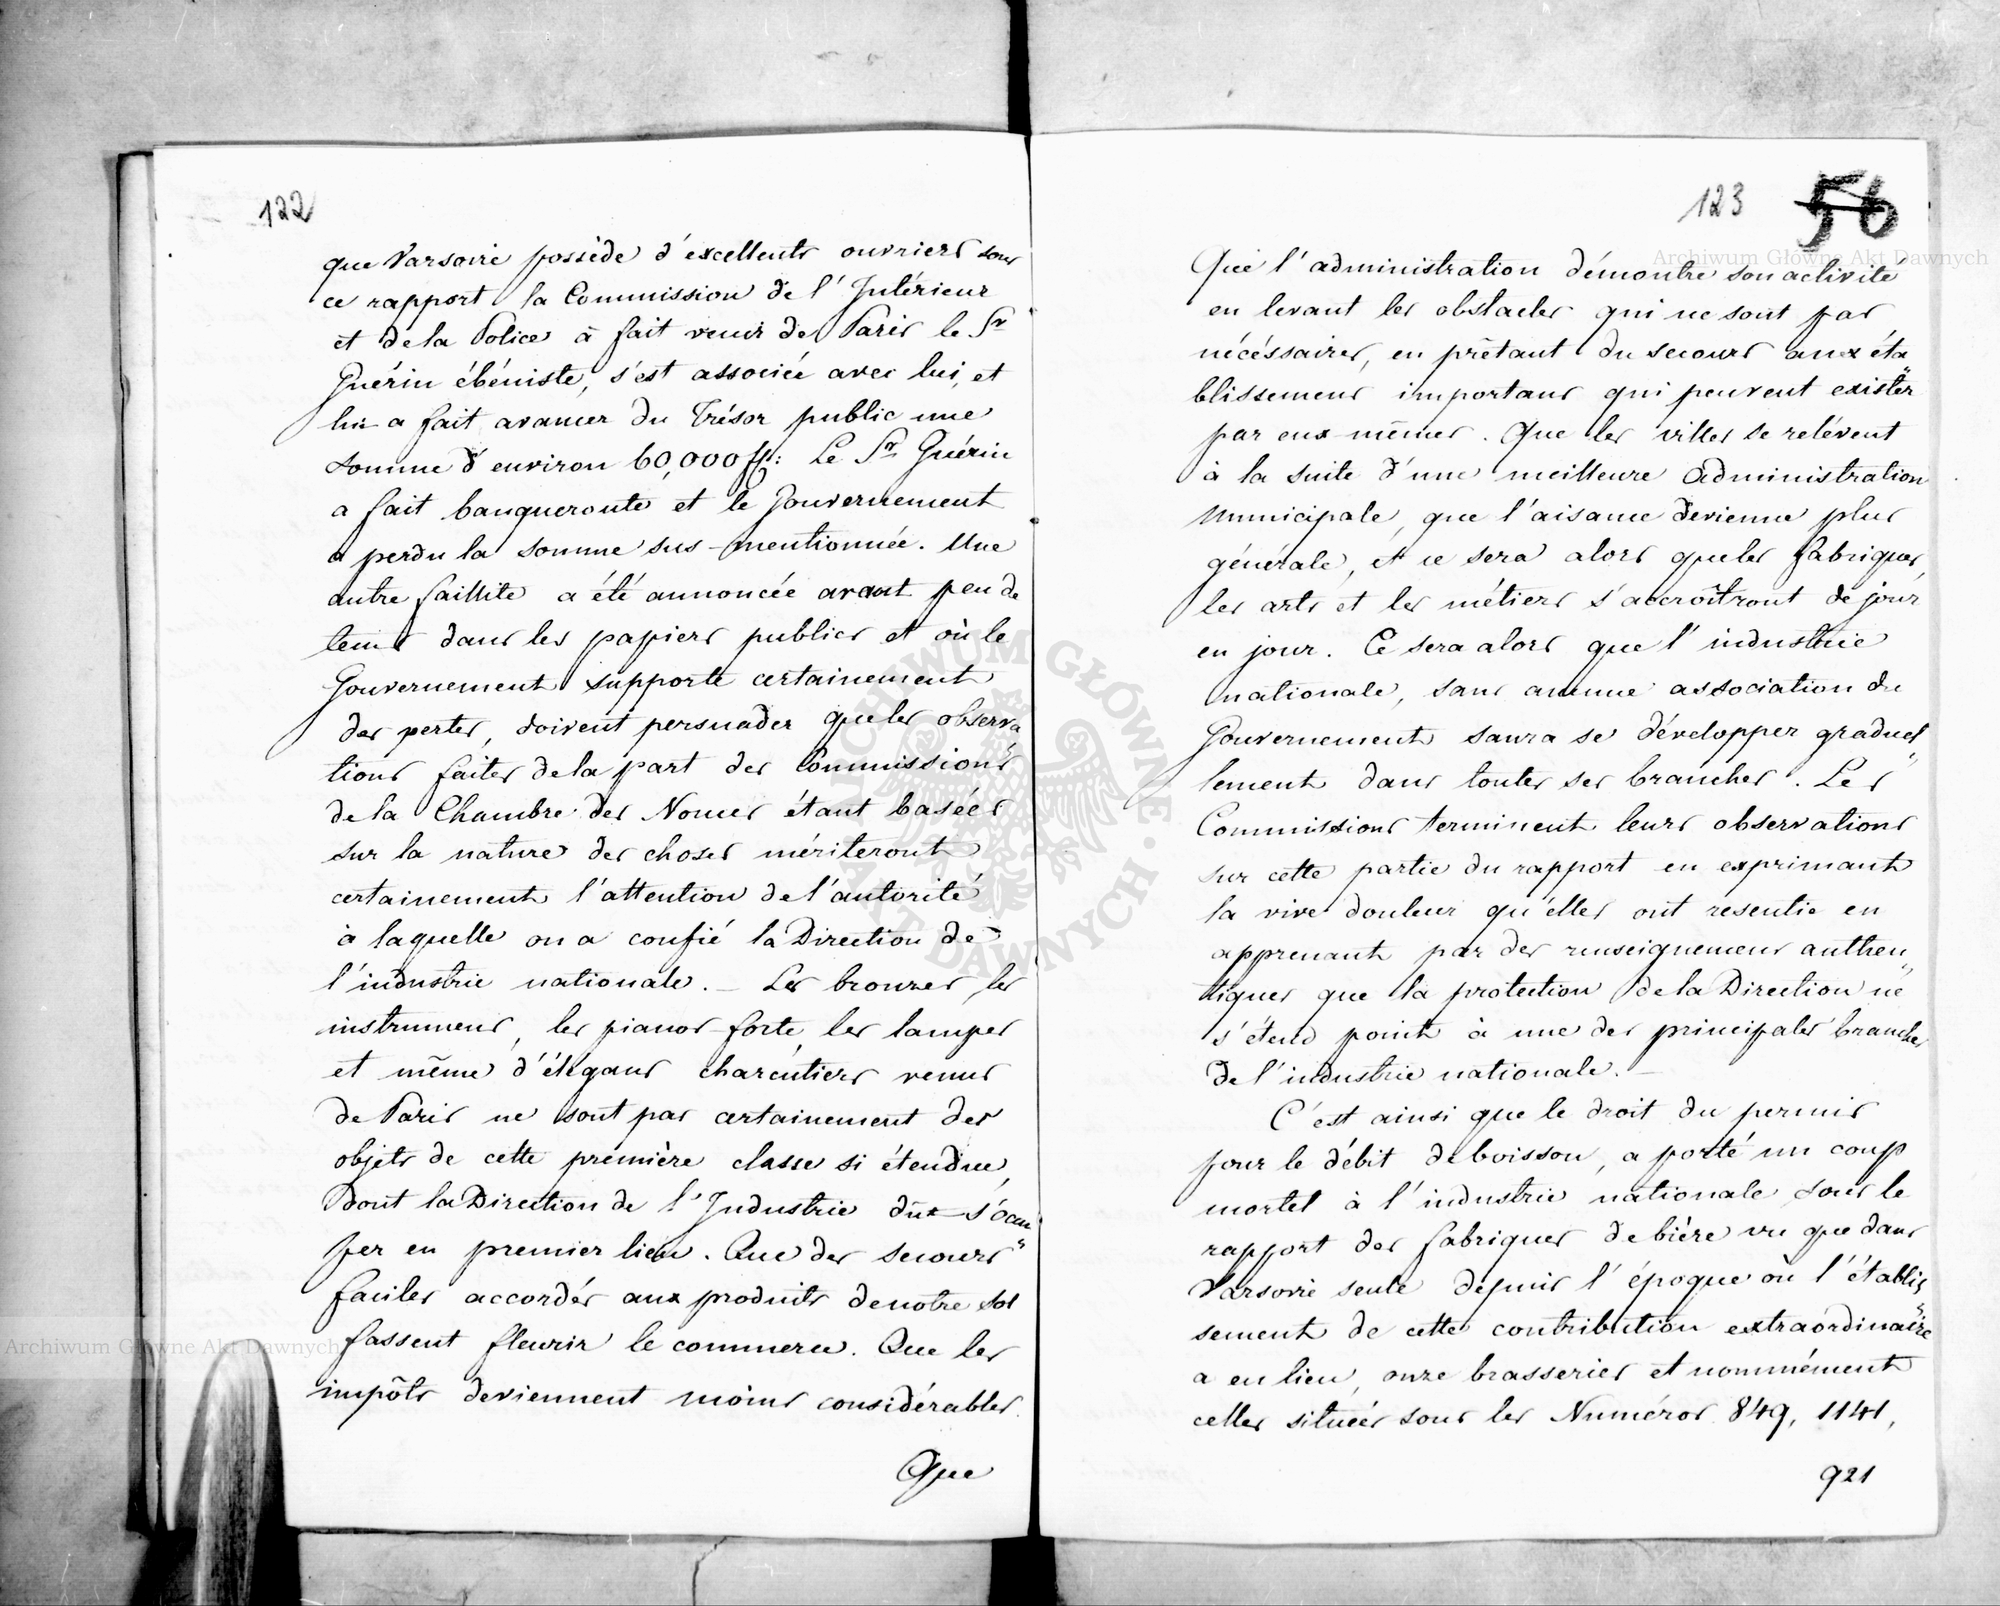 122
que Varsovie possède d'excellents ouvriers sous
ce rapport la Commission de l'Intérieur
et de la Police à fait venir de Paris le Sr
Guérin ébéniste, s'est associée avec lui, et
lui a fait avancer du Trésor public une
somme d'environ 60,000 ff: Le Sr Guérin
a fait banqueroute et le Gouvernement
a perdu la somme sus-mentionnée. Une
autre faillite a été annoncée avant peu de
tems dans les papiers publics et où le
Gouvernement supporte certainement
des pertes, doivent persuader que les observa
tions faites de la part des Commissions
de la Chambre des Nonces étant basées
sur la nature des choses mériteront
certainement l'attention de l'autorité
à laquelle on a confié la Direction de
l'industrie nationale. — Les bronzes, les
instrumens, les pianos-forte, les lampes
et même d'élégans charcutiers venus
de Paris ne sont pas certainement des
objets de cette première classe si étendue,
dont la Direction de l'Industrie dût s'occu
per en premier lieu. Que des secours
faciles accordés aux produits de notre sol
fassent fleurir le commerce. Que les
impôts deviennent moins considérables.
Que
123 56
Que l'administration démontre son activité
en levant les obstacles qui ne sont pas
nécéssaires, en prêtant du secours aux éta
blissemens importans qui peuvent exister
par eux-mêmes. Que les villes se relévent
à la suite d'une meilleure administration
Municipale, que l'aisance devienne plus
générale, et ce sera alors que les fabriques,
les arts et les métiers s'accroîtront de jour
en jour. Ce sera alors que l'industrie
nationale, sans aucune association du
Gouvernement saura se développer graduel
lement dans toutes ses branches. Les
Commissions terminent leurs observations
sur cette partie du rapport en exprimant
la vive douleur qu'elles ont resentie en
apprenant par des renseignemens authen
tiques que la protection de la Direction ne
s'étend point à une des principales branches
de l'industrie nationale. —
C'est ainsi que le droit du permis
pour le débit de boisson, a porté un coup
mortel à l'industrie nationale sous le
rapport des fabriques de bière vu que dans
Varsovie seule depuis l'époque où l'établis
sement de cette contribution extraordinaire
a eu lieu, onze brasseries et nommément
celles situées sous les Numéros 849, 1141,
921
Archiwum Główne Akt Dawnych
Archiwum Główne Akt Dawnych
ARCHIWUM GŁÓWNE AKT DAWNYCH